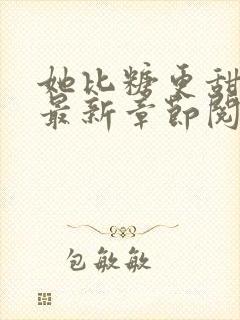 她比糖更甜
最新章节阅
包敏敏